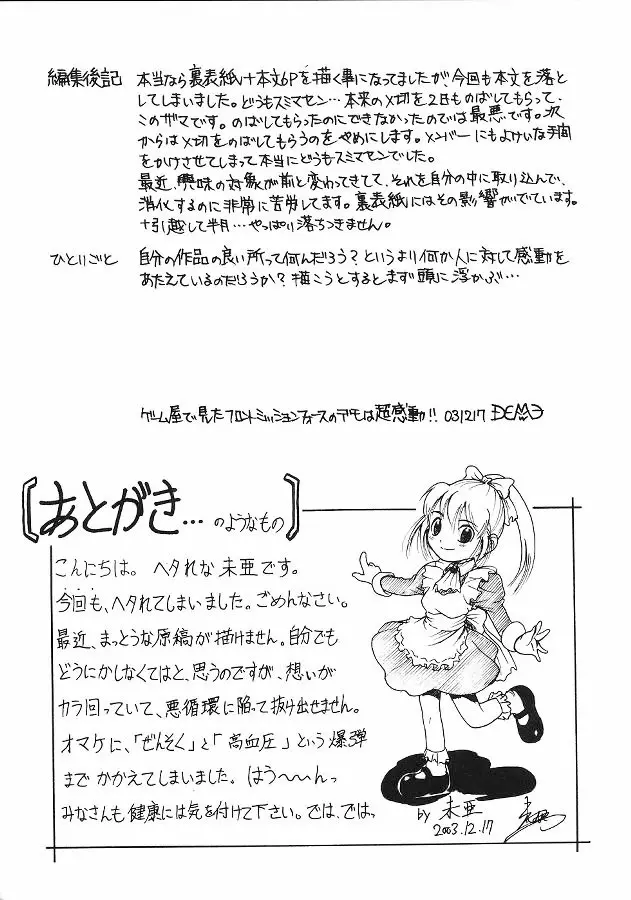 編集後記
本当なら裏表紙+本文6Pを描く事になってましたが、今回も本文を落と
してしまいました。どうもスミマセン…本来の〆切を2日ものばしてもらって、
このザマです。のばしてもらったのにできなかったのでは最悪です。次
からは〆切をのばしてもらうのをやめにします。メンバーにもよけいな手間
をかけさせてしまって本当にどうもスミマセンでした。
最近、興味の対象が前と変わってきてして、それを自分の中に取り込んで、
消化するのに非常に苦労してます。裏表紙にはその影響がでています。
+引越して半月…やっぱり落ちつきません。
ひとりごと
自分の作品の良い所って何んだろう?というより何か人に対して感動を
あたえているのだろうか?描こうとするとまず頭に浮かぶ…
ゲーム屋で見たフロントミッションフォースのデモは超感動!! 031217
[あとがき…のようなもの]
こんにちは。ヘタれな未亜です。
今回も、ヘタれてしまいました。ごめんなさい。
最近、まっとうな原稿が描けません。自分でも
どうにかしなくてはと、思うのですが、想いが
カラ回っていて、悪循環に陥って抜け出せません。
オマケに、「ぜんそく」と「高血圧」という爆弾
まで かかえてしまいました。はう〜〜んっ
みなさんも健康には気を付けて下さい。では、では。
by 未亜
2003.12.17